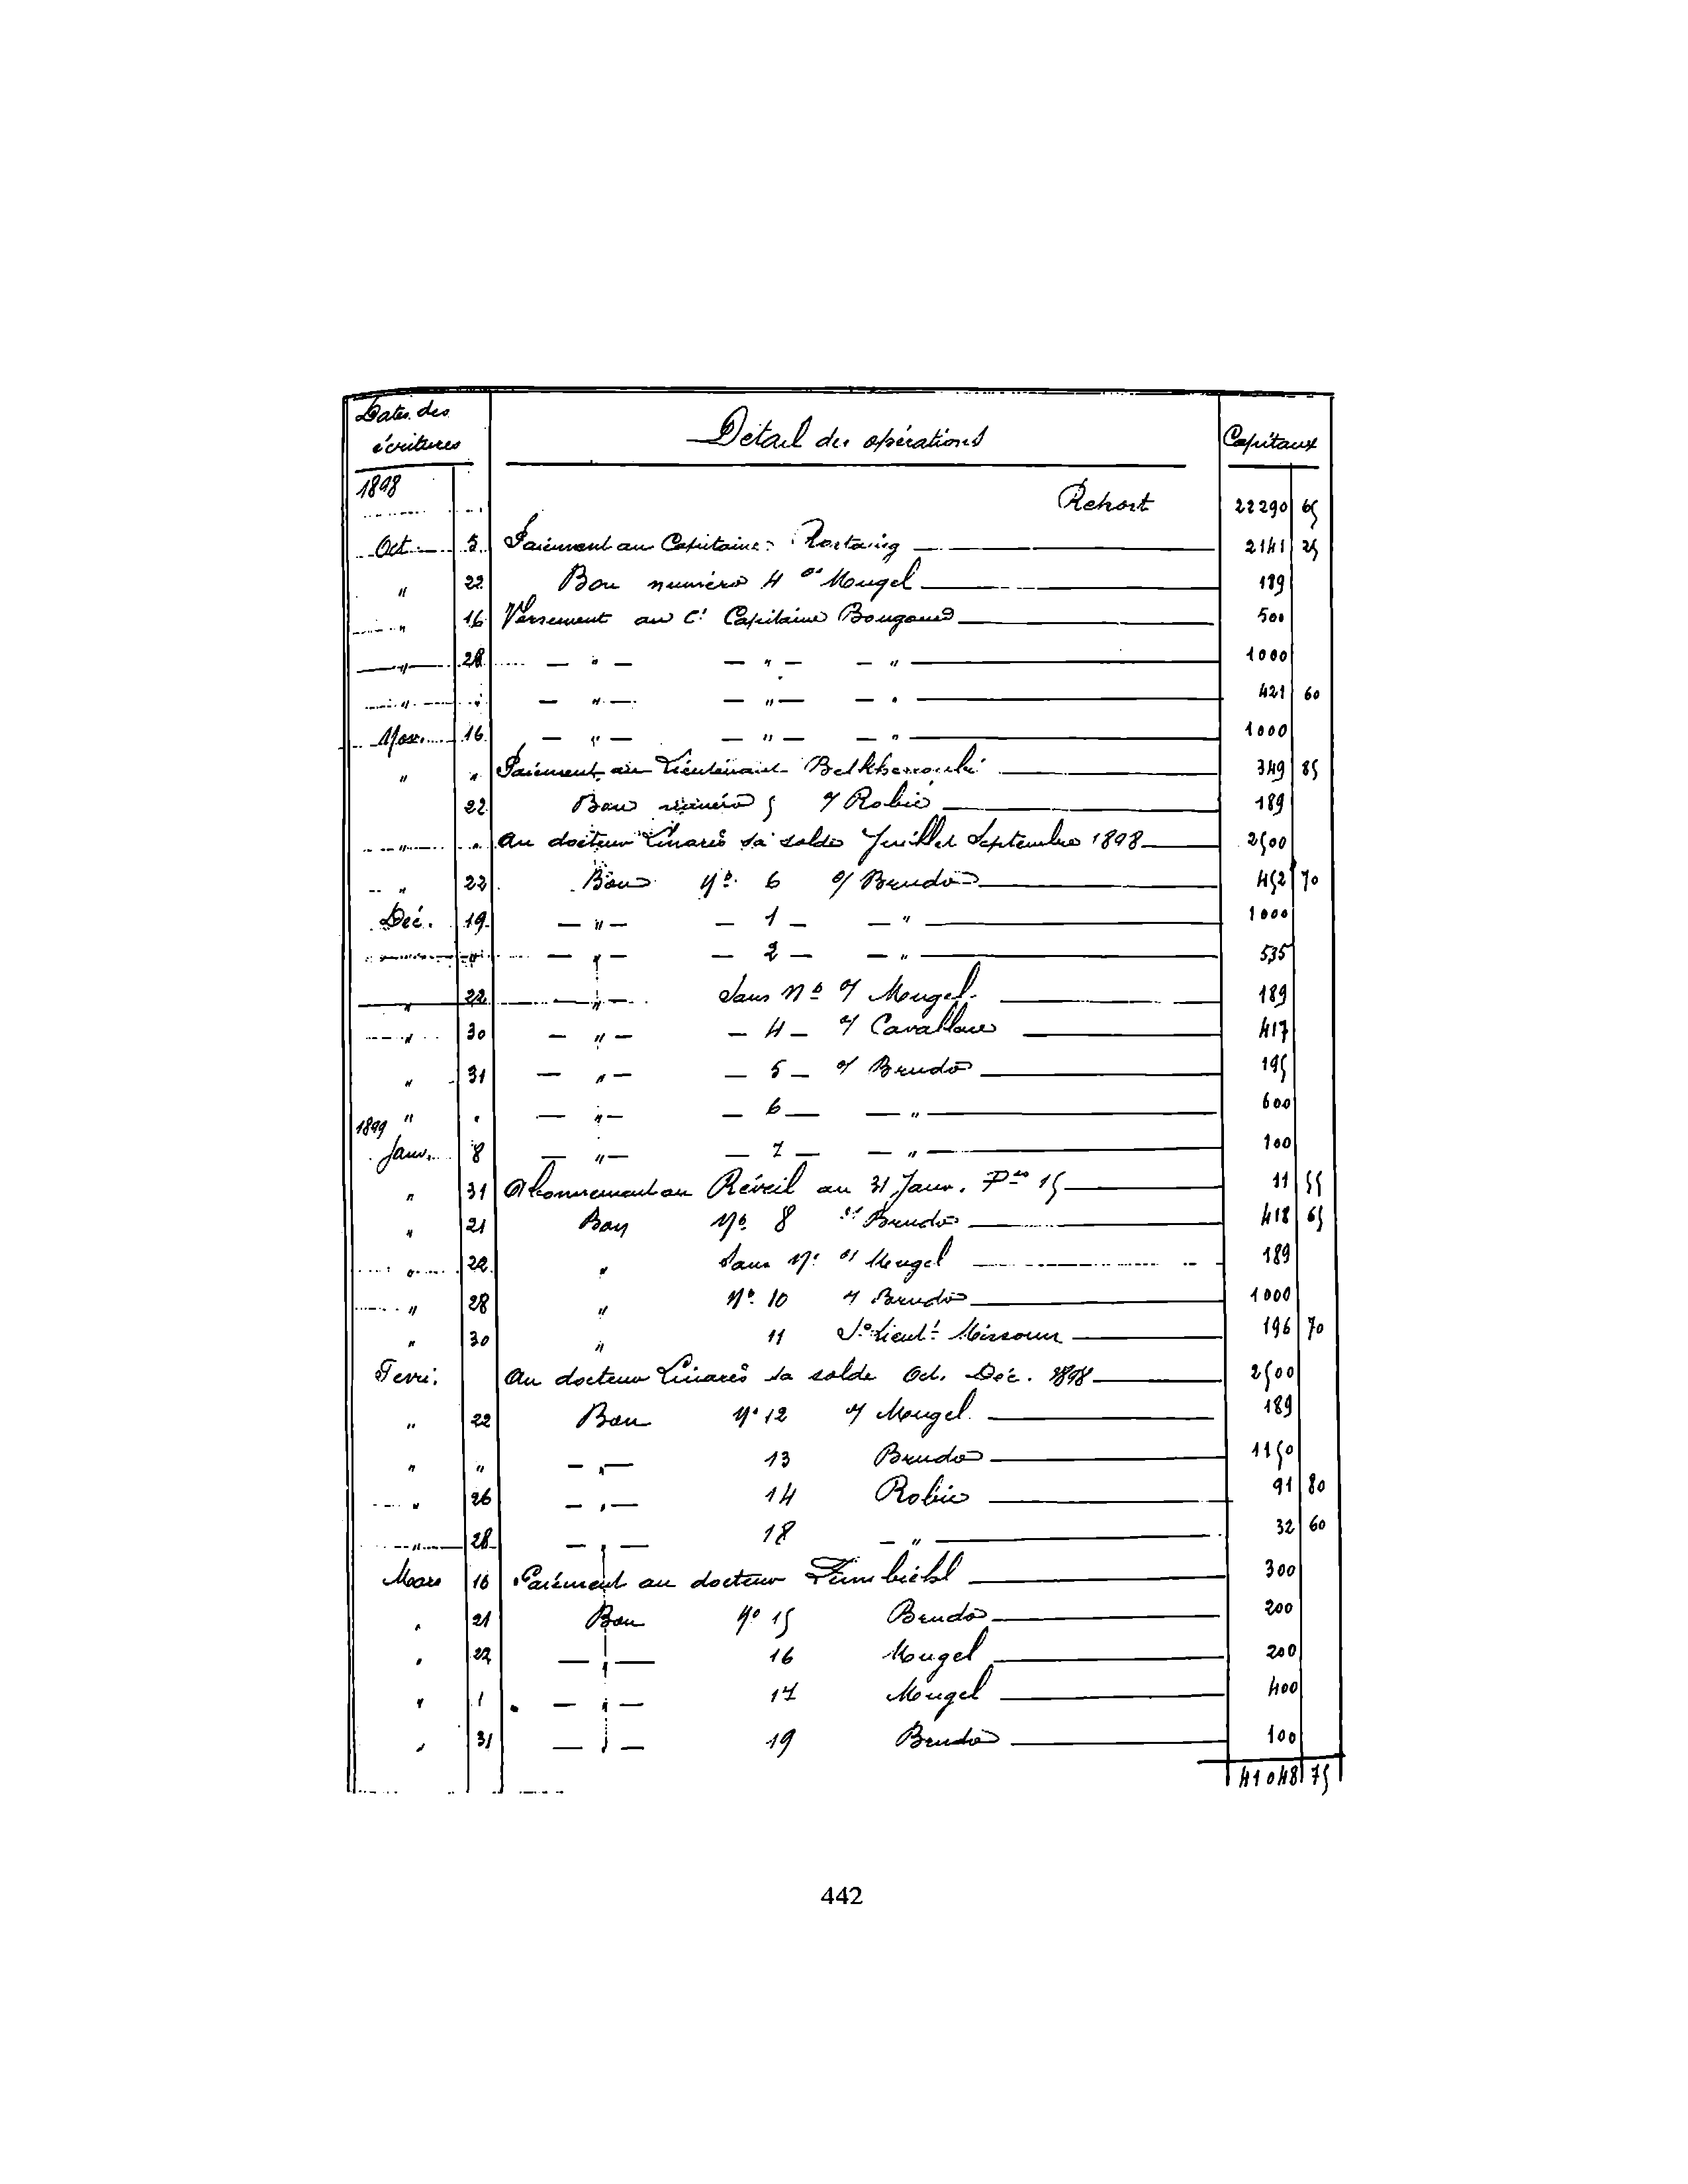 Dates des
écritures
Détail des opérations
Capitaux
1898
Report 22290 65
Oct. 5 Paiement au Capitaine Rostaing 2141 25
" 22 Bon numéro 4 o/ Mougel 189
" 16 Versement au Ct Capitaine Bougoues 500
" 28 — " — — " — — " 1000
" " — " — — " — — " 421 60
Nov. 16 — " — — " — — " 1000
" " Paiement au Lieutenant 349 85
22 Bon numéro 5 o/ Robic 189
" " Au docteur Linarès sa solde Juillet Septembre 1898 2500
" 22 Bon No. 6 o/ Brudo 452 70
Déc. 19 — " — — 1 — — " 1000
" " — " — — 2 — — " 535
" 22 — " — Sans No o/ Mougel 189
" 30 — " — — 4 — o/ Cavallace 417
" 31 — " — — 5 — o/ Brudo 195
" " — " — — 6 — — " 600
1899
Janv. 8 — " — — 7 — — " 100
" 31 Abonnement au Réveil au 31 Janv. Ptas 15 11 55
" 21 Bon No. 8 o/ Brudo 418 65
" 22 " Sans No o/ Mougel 189
" 28 " No. 10 o/ Brudo 1000
" 30 " 11 S. Lieut. Missoum 196 70
Fevri. Au docteur Linarès sa solde Oct. Déc. 1898 2500
" 22 Bon No 12 o/ Mougel 189
" " — " — 13 Brudo 1150
" 26 — " — 14 Robic 91 80
" 28 — " — 18 — " 32 60
Mars 16 Paiement au docteur 300
" 21 Bon No 15 Brudo 200
" 22 — " — 16 Mougel 200
" 1 — " — 17 Mougel 400
" 31 — " — 19 Brudo 100
41048 75
442